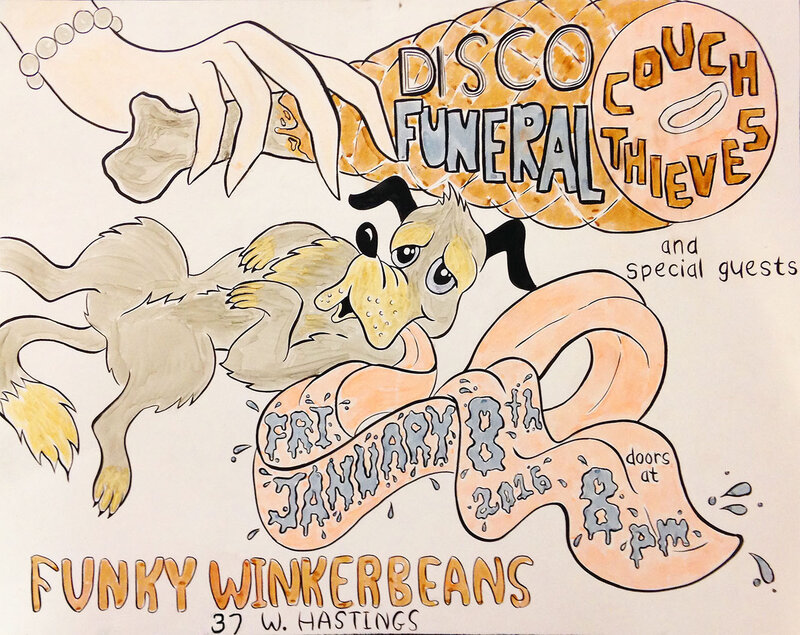 DISCO
FUNERAL
COUCH
THIEVES
and
special guests
FRI.
JANUARY 8th
2016
doors
at
8 pm
FUNKY WINKERBEANS
37 W. HASTINGS